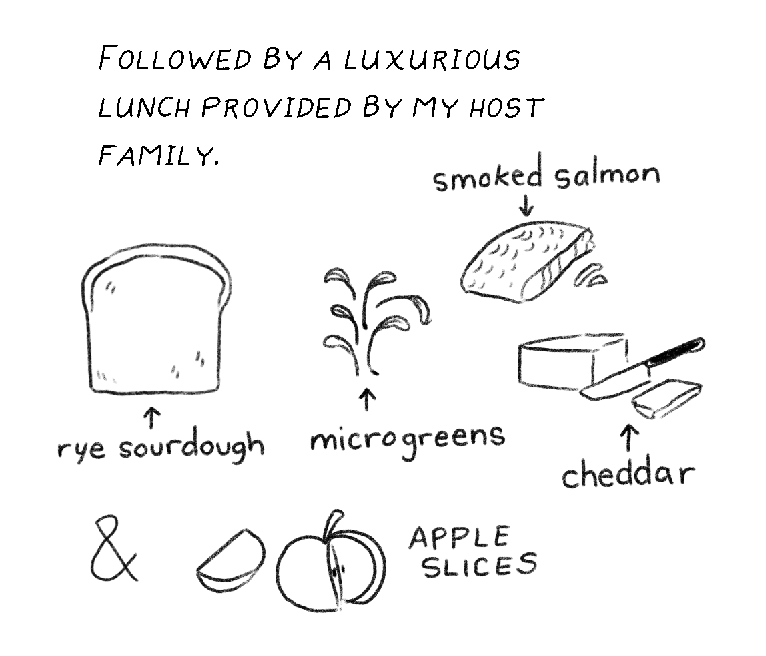 FOLLOWED BY A LUXURIOUS
LUNCH PROVIDED BY MY HOST
FAMILY.
smoked salmon
rye sourdough
microgreens
cheddar
&
APPLE
SLICES